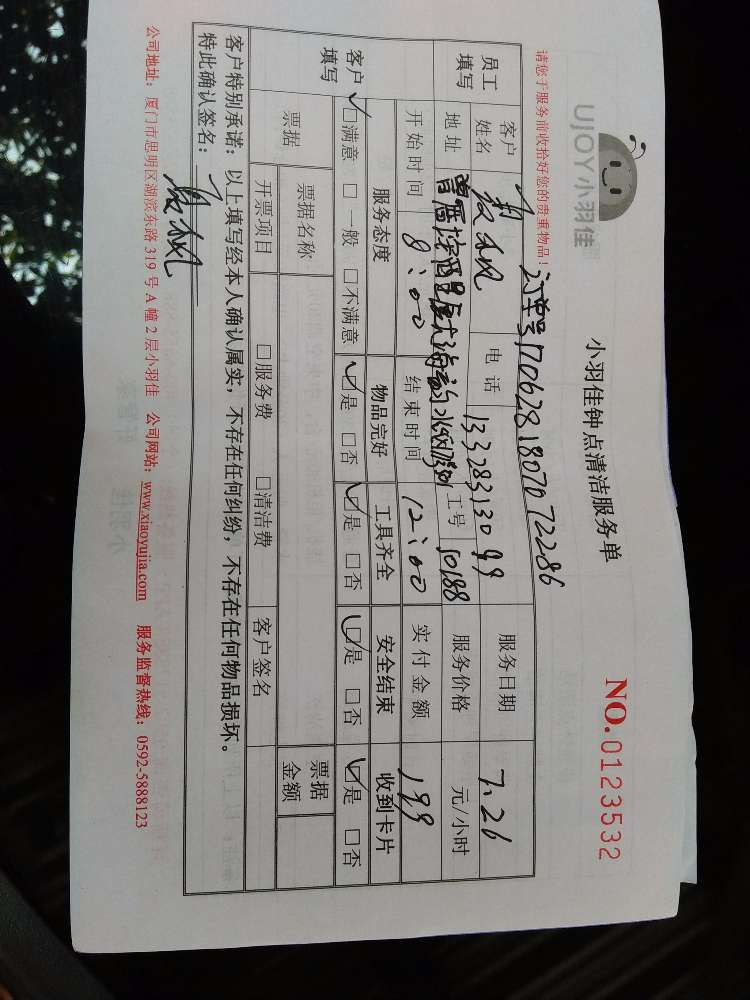 UJOY小羽佳
小羽佳钟点清洁服务单
NO.0123532
请您于服务前收拾好您的贵重物品！
订单号170628180707 2286
员工填写
客户姓名
电话 13328313099
服务日期 7.26
地址
工号 50188
服务价格 元/小时
开始时间 8:00
结束时间 12:00
实付金额 199
客户填写
服务态度 物品完好 工具齐全 安全结束 收到卡片
☑满意 □一般 □不满意 ☑是 □否 ☑是 □否 ☑是 □否 ☑是 □否
票据
票据名称
票据金额
开票项目 □服务费 □清洁费 客户签名
客户特别承诺：以上填写经本人确认属实，不存在任何纠纷，不存在任何物品损坏。
特此确认签名：
公司地址：厦门市思明区湖滨东路 319 号 A 幢 2 层小羽佳 公司网站：www.xiaoyujia.com 服务监督热线：0592-5888123